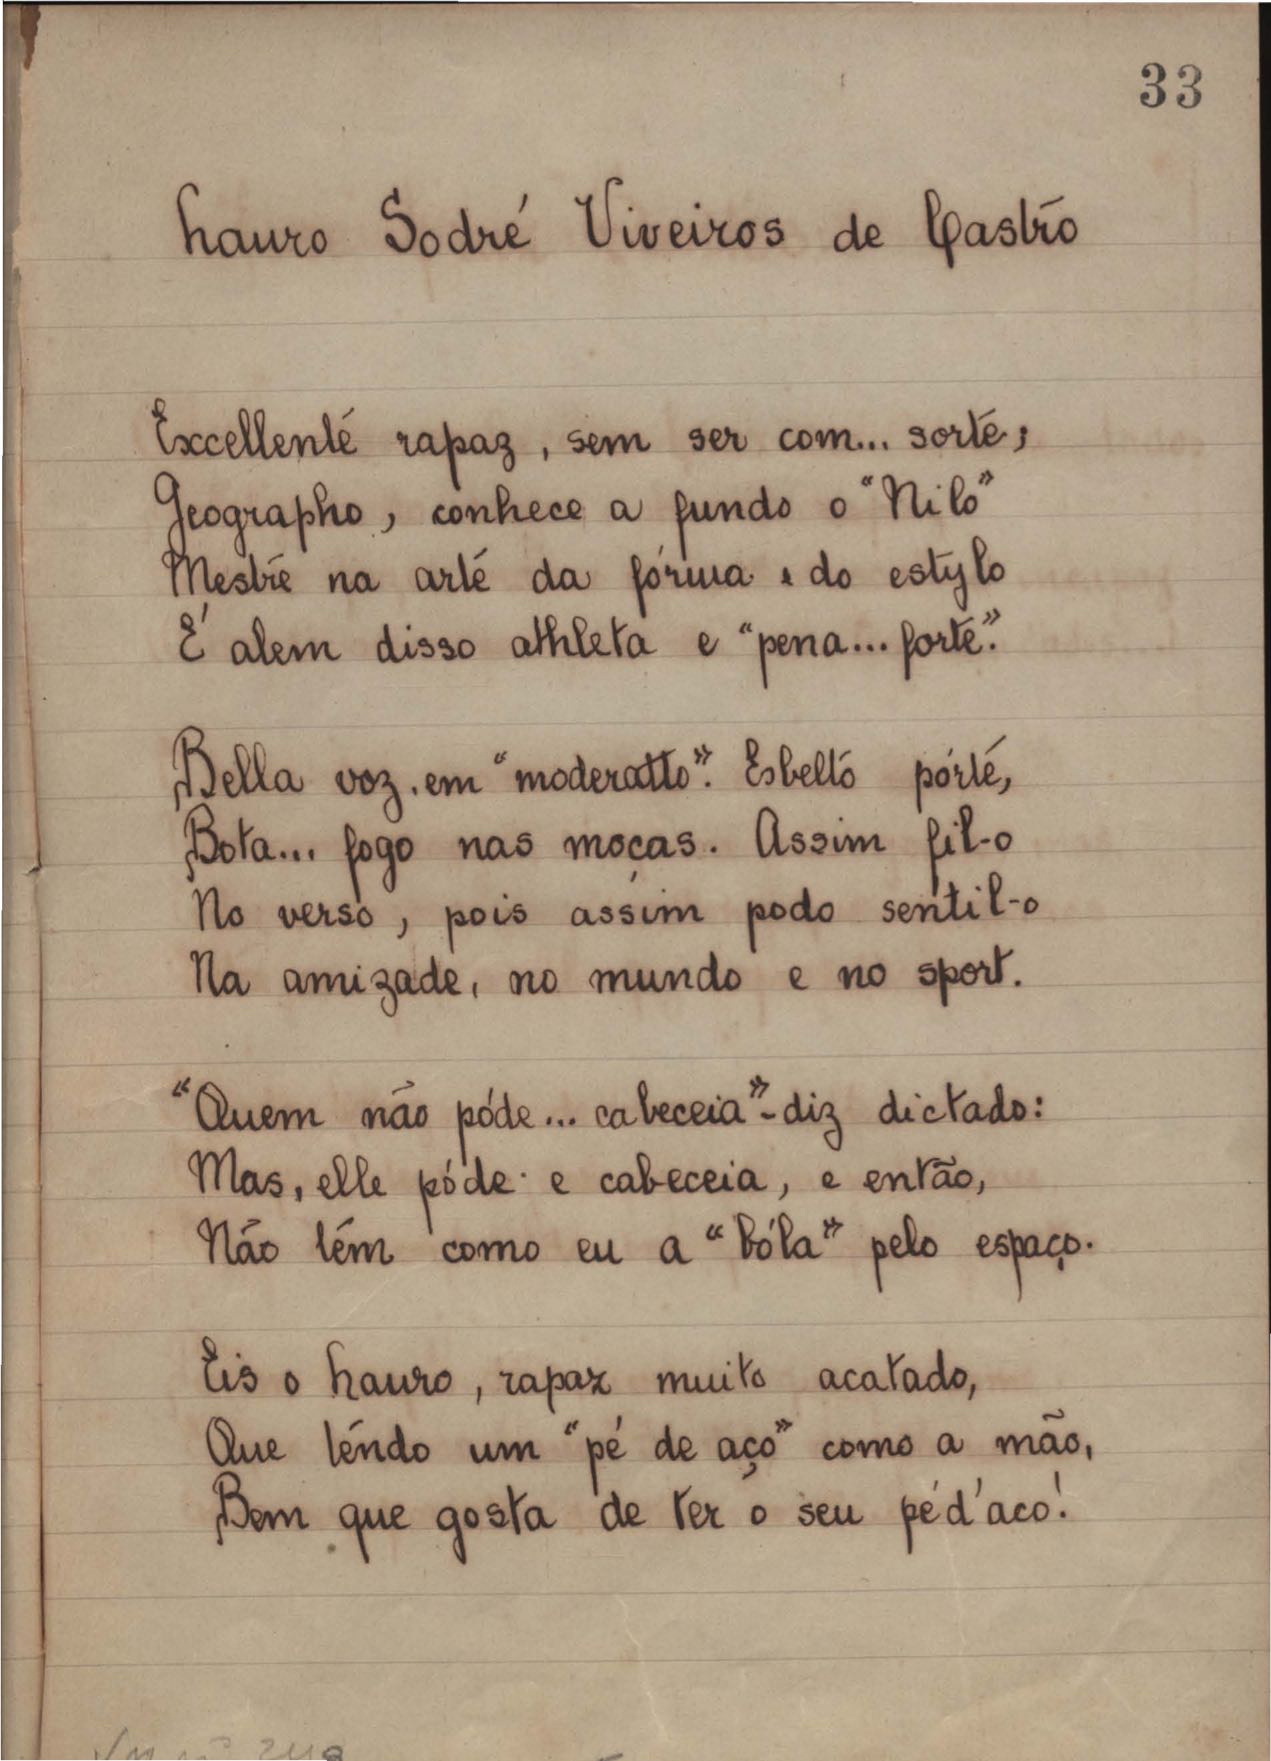 33
Lauro Sodré Viveiros de Castro
Excellente rapaz, sem ser com... sorte;
Geographo, conhece a fundo o "Nilo"
Mestre na arte da fórma e do estylo
É alem disso athleta e "pena... forte".
Bella voz, em "moderatto". Esbelto pórte,
Bota... fogo nas moças. Assim fil-o
No verso, pois assim podo sentil-o
Na amizade, no mundo e no sport.
"Quem não póde... cabeceia" - diz dictado:
Mas, elle póde e cabeceia, e então,
Não tem como eu a "bóla" pelo espaço.
Eis o Lauro, rapaz muito acatado,
Que tendo um "pé de aço" como a mão,
Bem que gosta de ter o seu pé d'aco!